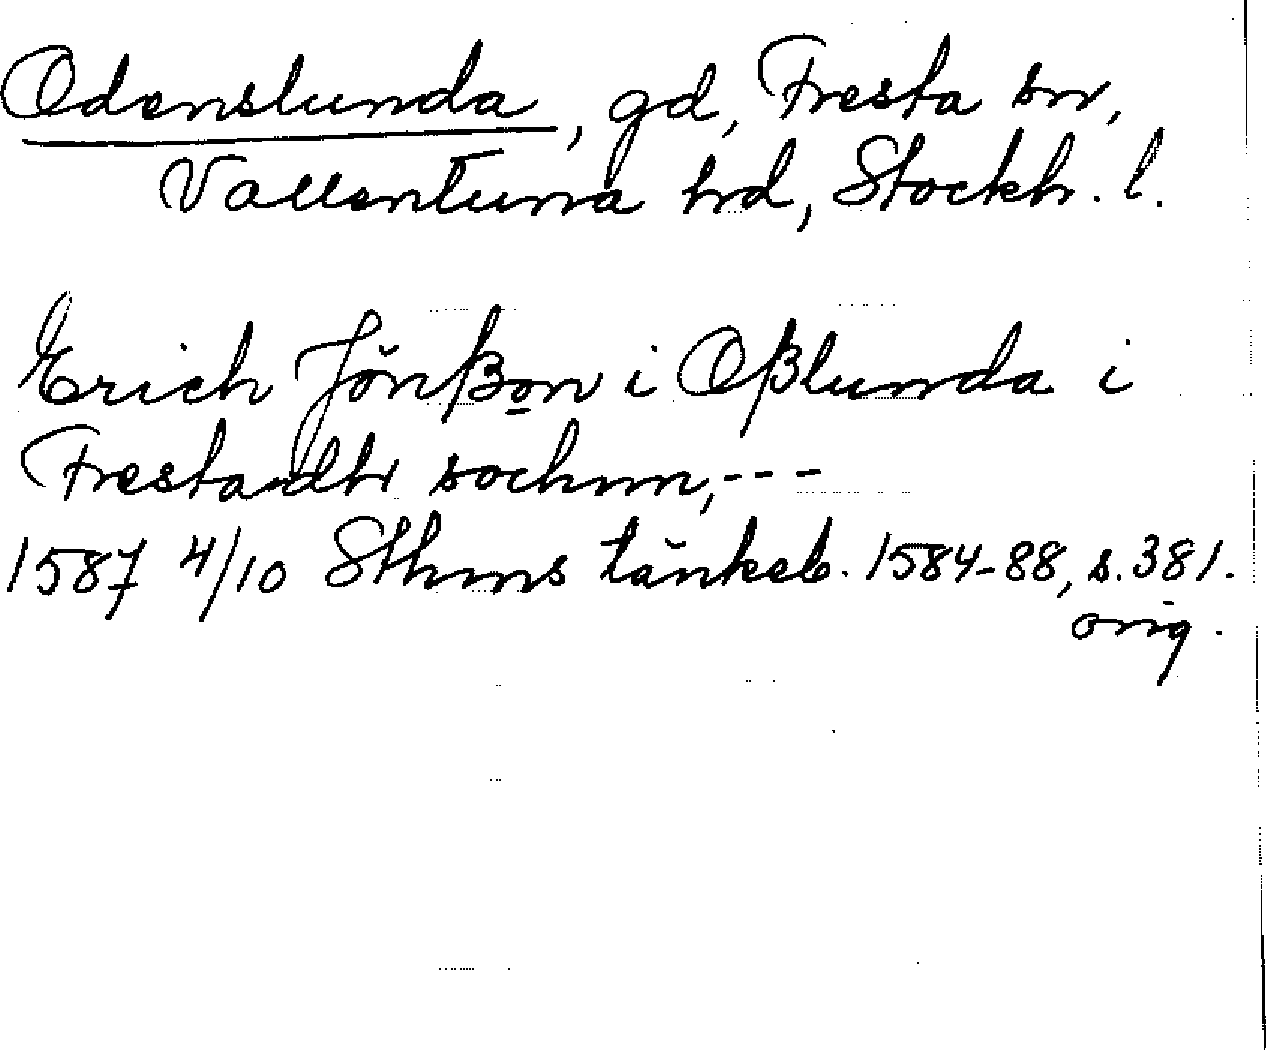 Odenslunda, gd, Fresta sn,
Vallentuna hd, Stockh. l.
Erich Jönßon i Oßlunda i
Frestandh sochnn, - - -
1587 4/10 Sthms tänkeb. 1584-88, s. 381.
orig.